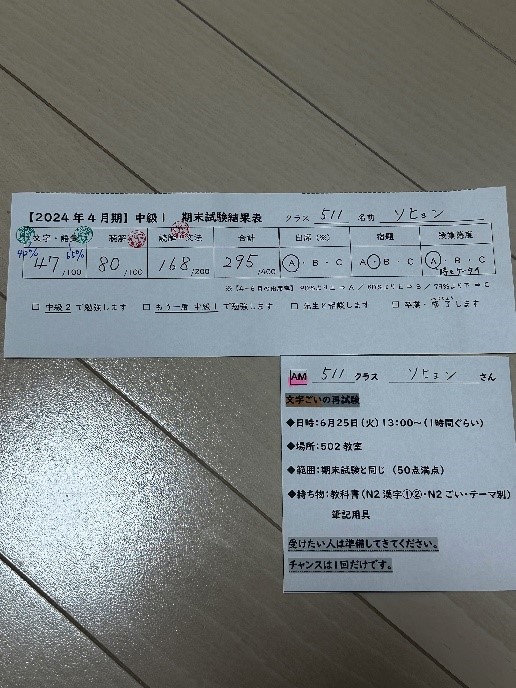 【2024年4月期】中級Ⅰ 期末試験結果表 クラス 511 名前 ソヒョン
文字・語彙 聴解 読解・文法 合計 出席(※) 宿題 授業態度
40% 65%
47/100 80/100 168/200 295/400 A・B・C A・B・C A・B・C
時々ケータイ
□ 中級2で勉強します □ もう一度 中級1で勉強します □ 先生と相談します □ 卒業・修了します
AM 511 クラス ソヒョン さん
文字ごいの再試験
◆日時:6月25日(火)13:00~(1時間ぐらい)
◆場所:502教室
◆範囲:期末試験と同じ (50点満点)
◆持ち物:教科書(N2漢字①②・N2ごい・テーマ別)
筆記用具
受けたい人は準備してきてください。
チャンスは1回だけです。